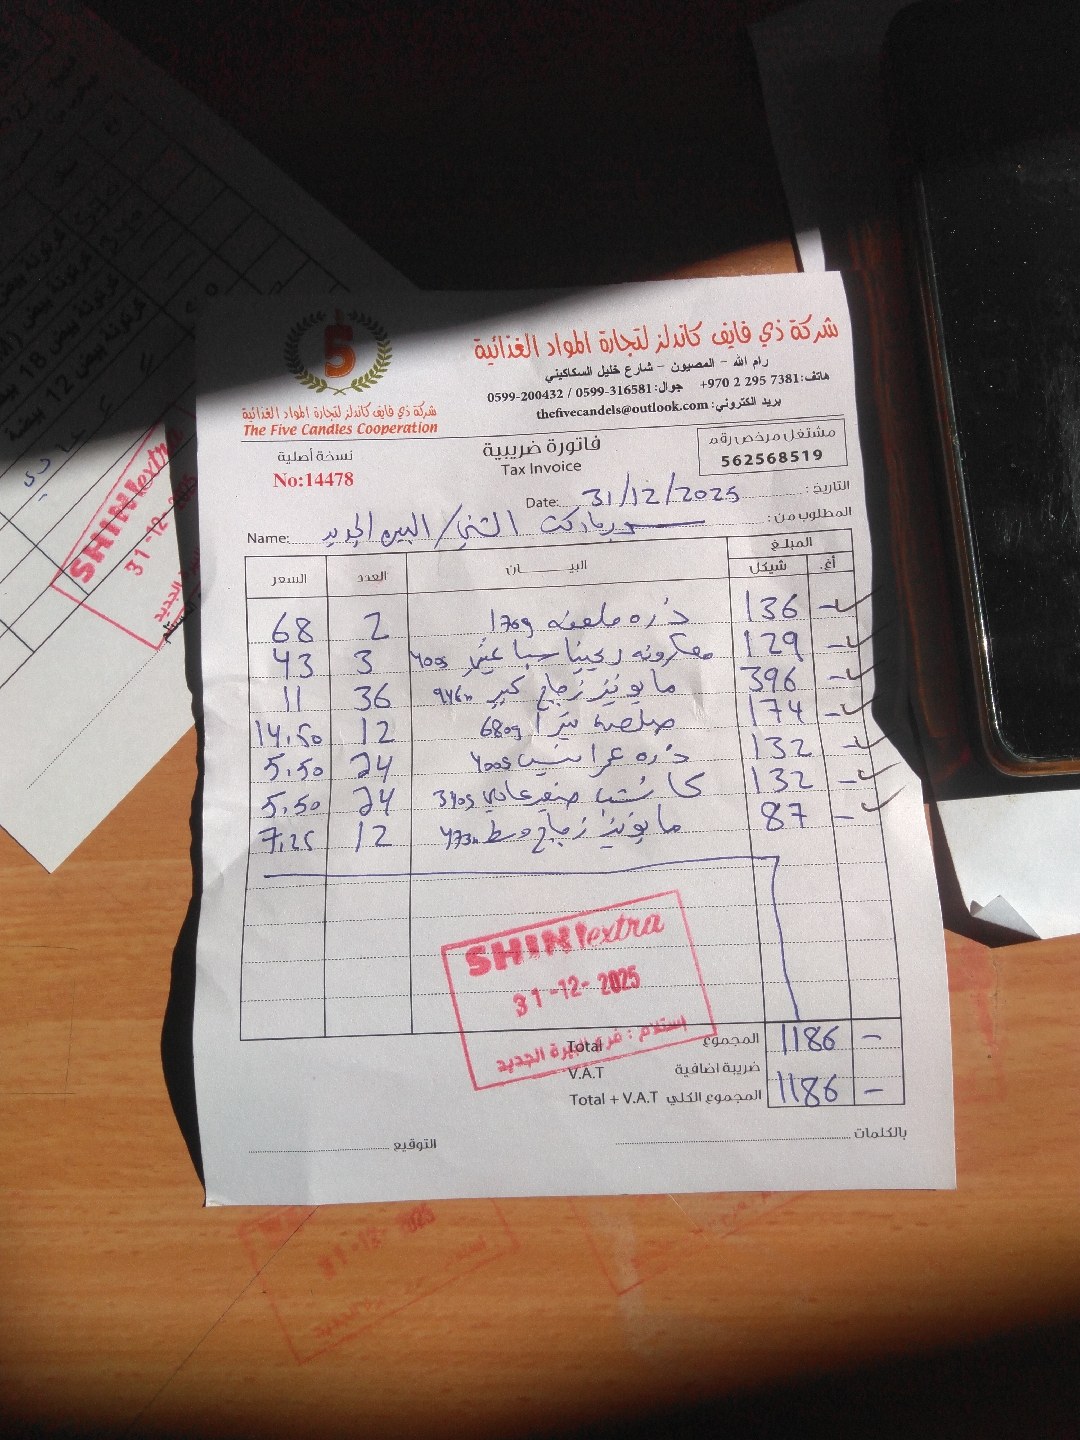 شركة ذي فايف كاندلز لتجارة المواد الغذائية
رام الله - المصيون - شارع خليل السكاكيني
هاتف: 7381 295 2 970+ جوال: 0599-316581 / 0599-200432
بريد الكتروني: thefivecandels@outlook.com
5
شركة ذي فايف كاندلز لتجارة المواد الغذائية
The Five Candles Cooperation
نسخة أصلية
No:14478
فاتورة ضريبية
Tax Invoice
مشتغل مرخص رقم
562568519
التاريخ: 31/12/2025 Date:
المطلوب من: الشني / البيره الجديد Name:
المبلغ
أغ. شيكل البيـــــــان العدد السعر
- 136 ذره ملعقه 170g 2 68
- 129 معكرونه 400g 3 43
- 396 مايونيز زجاج كبير 946m 36 11
- 174 صلصه بيتزا 680g 12 14.50
- 132 ذره عرانيس 400g 24 5.50
- 132 كاتشب صغير عادي 340g 24 5.50
- 87 مايونيز زجاج وسط 473m 12 7.25
SHINI extra
31-12-2025
استلام: فرع البيرة الجديد
المجموع Total 1186 -
ضريبة اضافية V.A.T
المجموع الكلي Total + V.A.T 1186 -
بالكلمات
التوقيع
SHINI extra
31-12-2025